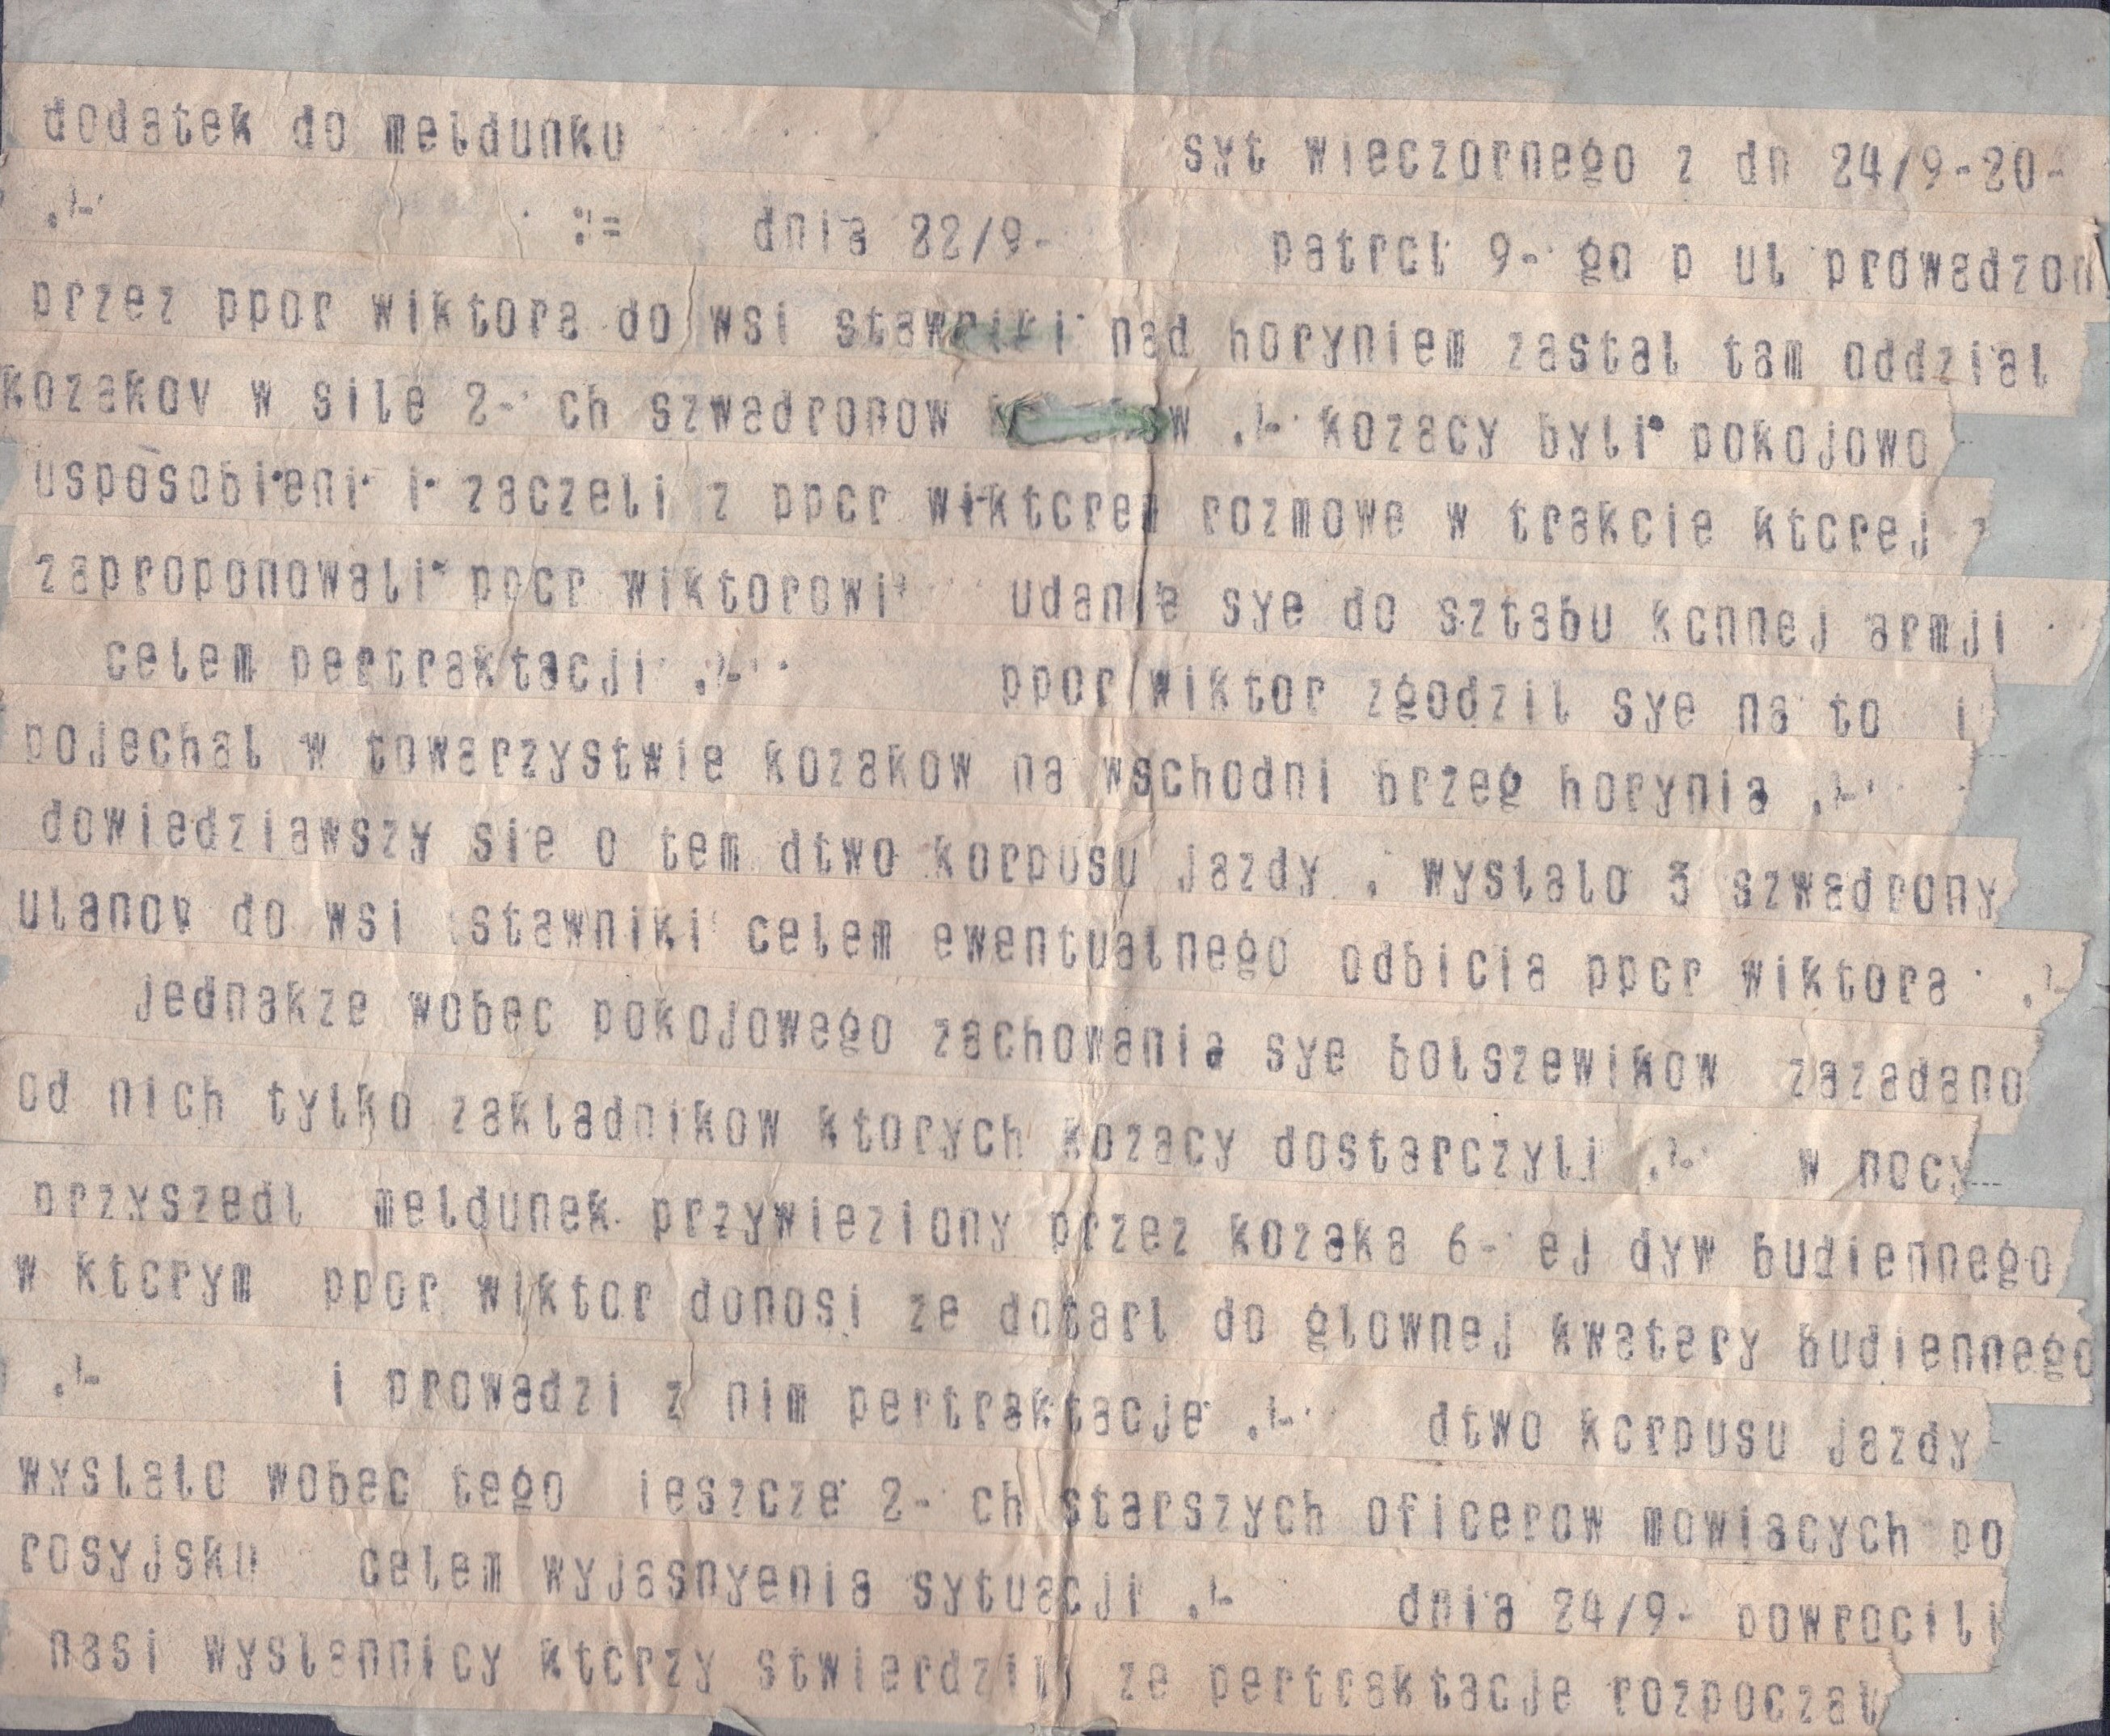 dodatek do meldunku syt wieczornego z dn 24/9-20-
.- := dnia 22/9- patrcl 9- go p ul prowadzon
przez ppor wiktora do wsi stawniki nad horyniem zastal tam oddzial
kozakov w sile 2- ch szwadronow .- kozacy byli pokojowo
usposobieni i zaczeli z ppcr wiktcrem rozmowe w trakcie ktcrej z
zaproponowali ppcr wiktorowi udania sye do sztabu kcnnej armji
celem pertraktacji .- ppor wiktor zgodzil sye na to i
pojechal w towarzystwie kozakow na wschodni brzeg horynia .-
dowiedziawszy sie o tem dtwo korpusu jazdy . wyslalo 3 szwadrony
ulanov do wsi stawniki celem ewentualnego odbicia ppcr wiktora .-
jednakze wobec pokojowego zachowania sye bolszewikow zazadano
od nich tylko zakladnikow ktorych kozacy dostarczyli .- w nocy
przyszedl meldunek przywieziony przez kozaka 6- ej dyw budiennego
w ktcrym ppor wiktor donosi ze dotarl do glownej kwatery budiennego
.- i prowadzi z nim pertraktacje .- dtwo kcrpusu jazdy
wyslalo wobec tego ieszcze 2- ch starszych oficerow mowiacych po
rosyjsku celem wyjasnyenia sytuacji .- dnia 24/9- powrocili
nasi wyslannicy ktcrzy stwierdzili ze pertraktacje rozpoczal